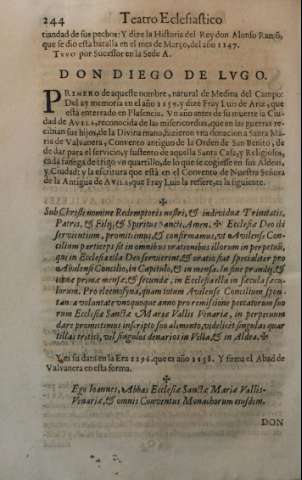 244 Teatro Eclesiastico
tiandad de sus pechos: Y dize la Historia del Rey don Alonso Ramõ,
que se dio esta batalla en el mes de Março, del año 1147.
Tuvo por Sucessor en la Sede A
DON DIEGO DE LVGO.
PRIMERO de aqueste nombre, natural de Medina del Campo:
Del ay memoria en el año 1159. y dize Fray Luis de Ariz, que
está enterrado en Plasencia. Vn año antes de su muerte la Ciu
dad de AVILA, reconocida de las misericordias, que en las guerras re
cibian sus hijos, de la Divina mano, hizieron vna donacion a Santa Ma
ria de Valvanera, Convento antiguo de la Orden de San Benito, de
de dar para el servicio, y sustento de aquella Santa Casa, y Religiosos,
cada fanega de trigo vn quartillo, de lo que se cogiesse en sus Aldeas,
y Ciudad: y la escritura que está en el Convento de Nuestra Señora
de la Antigua de AVILA, que Fray Luis la refiere, es la siguiente.
✠
Sub Christi nomine Redemptoris nostri, & individuæ Trinitatis,
Patris, & Filij, & Spiritus Sancti, Amen. ✠ Ecclesiæ Deo ibi
servientium, promittimus, & confirmamus, vt Avilense Con-
cilium particeps sit in omnibus orationibus illorum in perpetuũ,
qui in Ecclesia illa Deo servierint, & oratio fiat specialiter pro
Abulensi Concilio, in Capitulo, & in mensa. In fine prandij, &
cœnæ primæ mensæ, & secundæ, in Ecclesia illa in sæcula sæcu-
lorum. Pro eleemosyna, quam totum Avilense Concilium spon-
tanea voluntate vnoquoque anno pro remissione peccatorum suo
rum Ecclesiæ Sanctæ Mariæ Vallis Venariæ, in perpetuum
dare promittimus inscripto suo alimento, videlicet singulas quar
tillas tritici, vel singulos denarios in Villa, & in Aldea. ✠
Y es su data en la Era 1196. que es año 1158. Y firma el Abad de
Valvanera en esta forma.
✠
Ego Ioannes, Abbas Ecclesiæ Sanctæ Mariæ Vallis-
Venariæ, & omnis Conventus Monachorum eiusdem.
DON